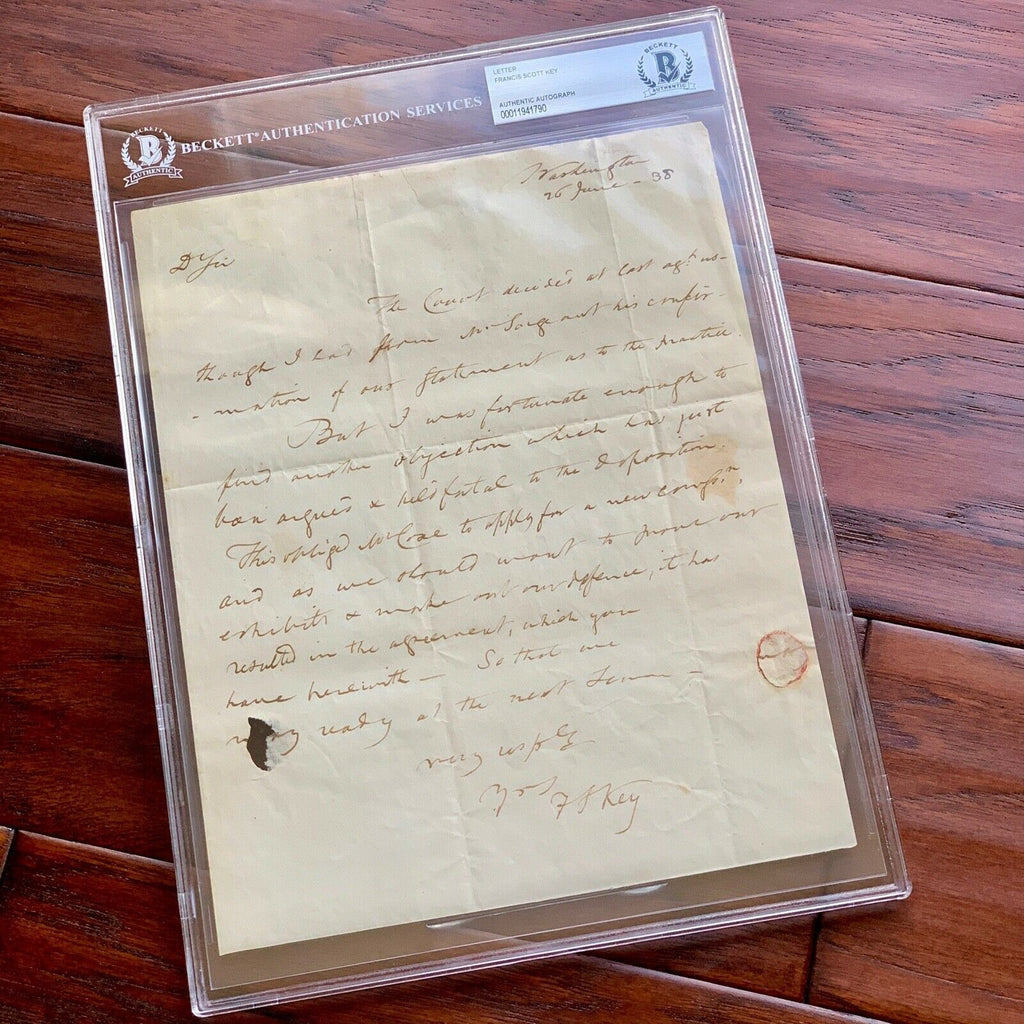 LETTER
FRANCIS SCOTT KEY
AUTHENTIC AUTOGRAPH
00011941790
BECKETT
B
AUTHENTIC
BECKETT
B
AUTHENTIC
BECKETT® AUTHENTICATION SERVICES
Washington
26 June - 38
Dr Sir
The Court decided at last agt. us -
though I had from Mr Sergeant his confir-
- mation of our statement as to the practice.
But I was fortunate enough to
find another objection which has just
been argued & held fatal to the deposition.
This obliged Mr Coxe to apply for a new
and as we should want to prove our
exhibits & make out our defence, it has
resulted in the agreement, which you
have herewith — So that we
ready at the next Term -
very
Yrs
F S Key